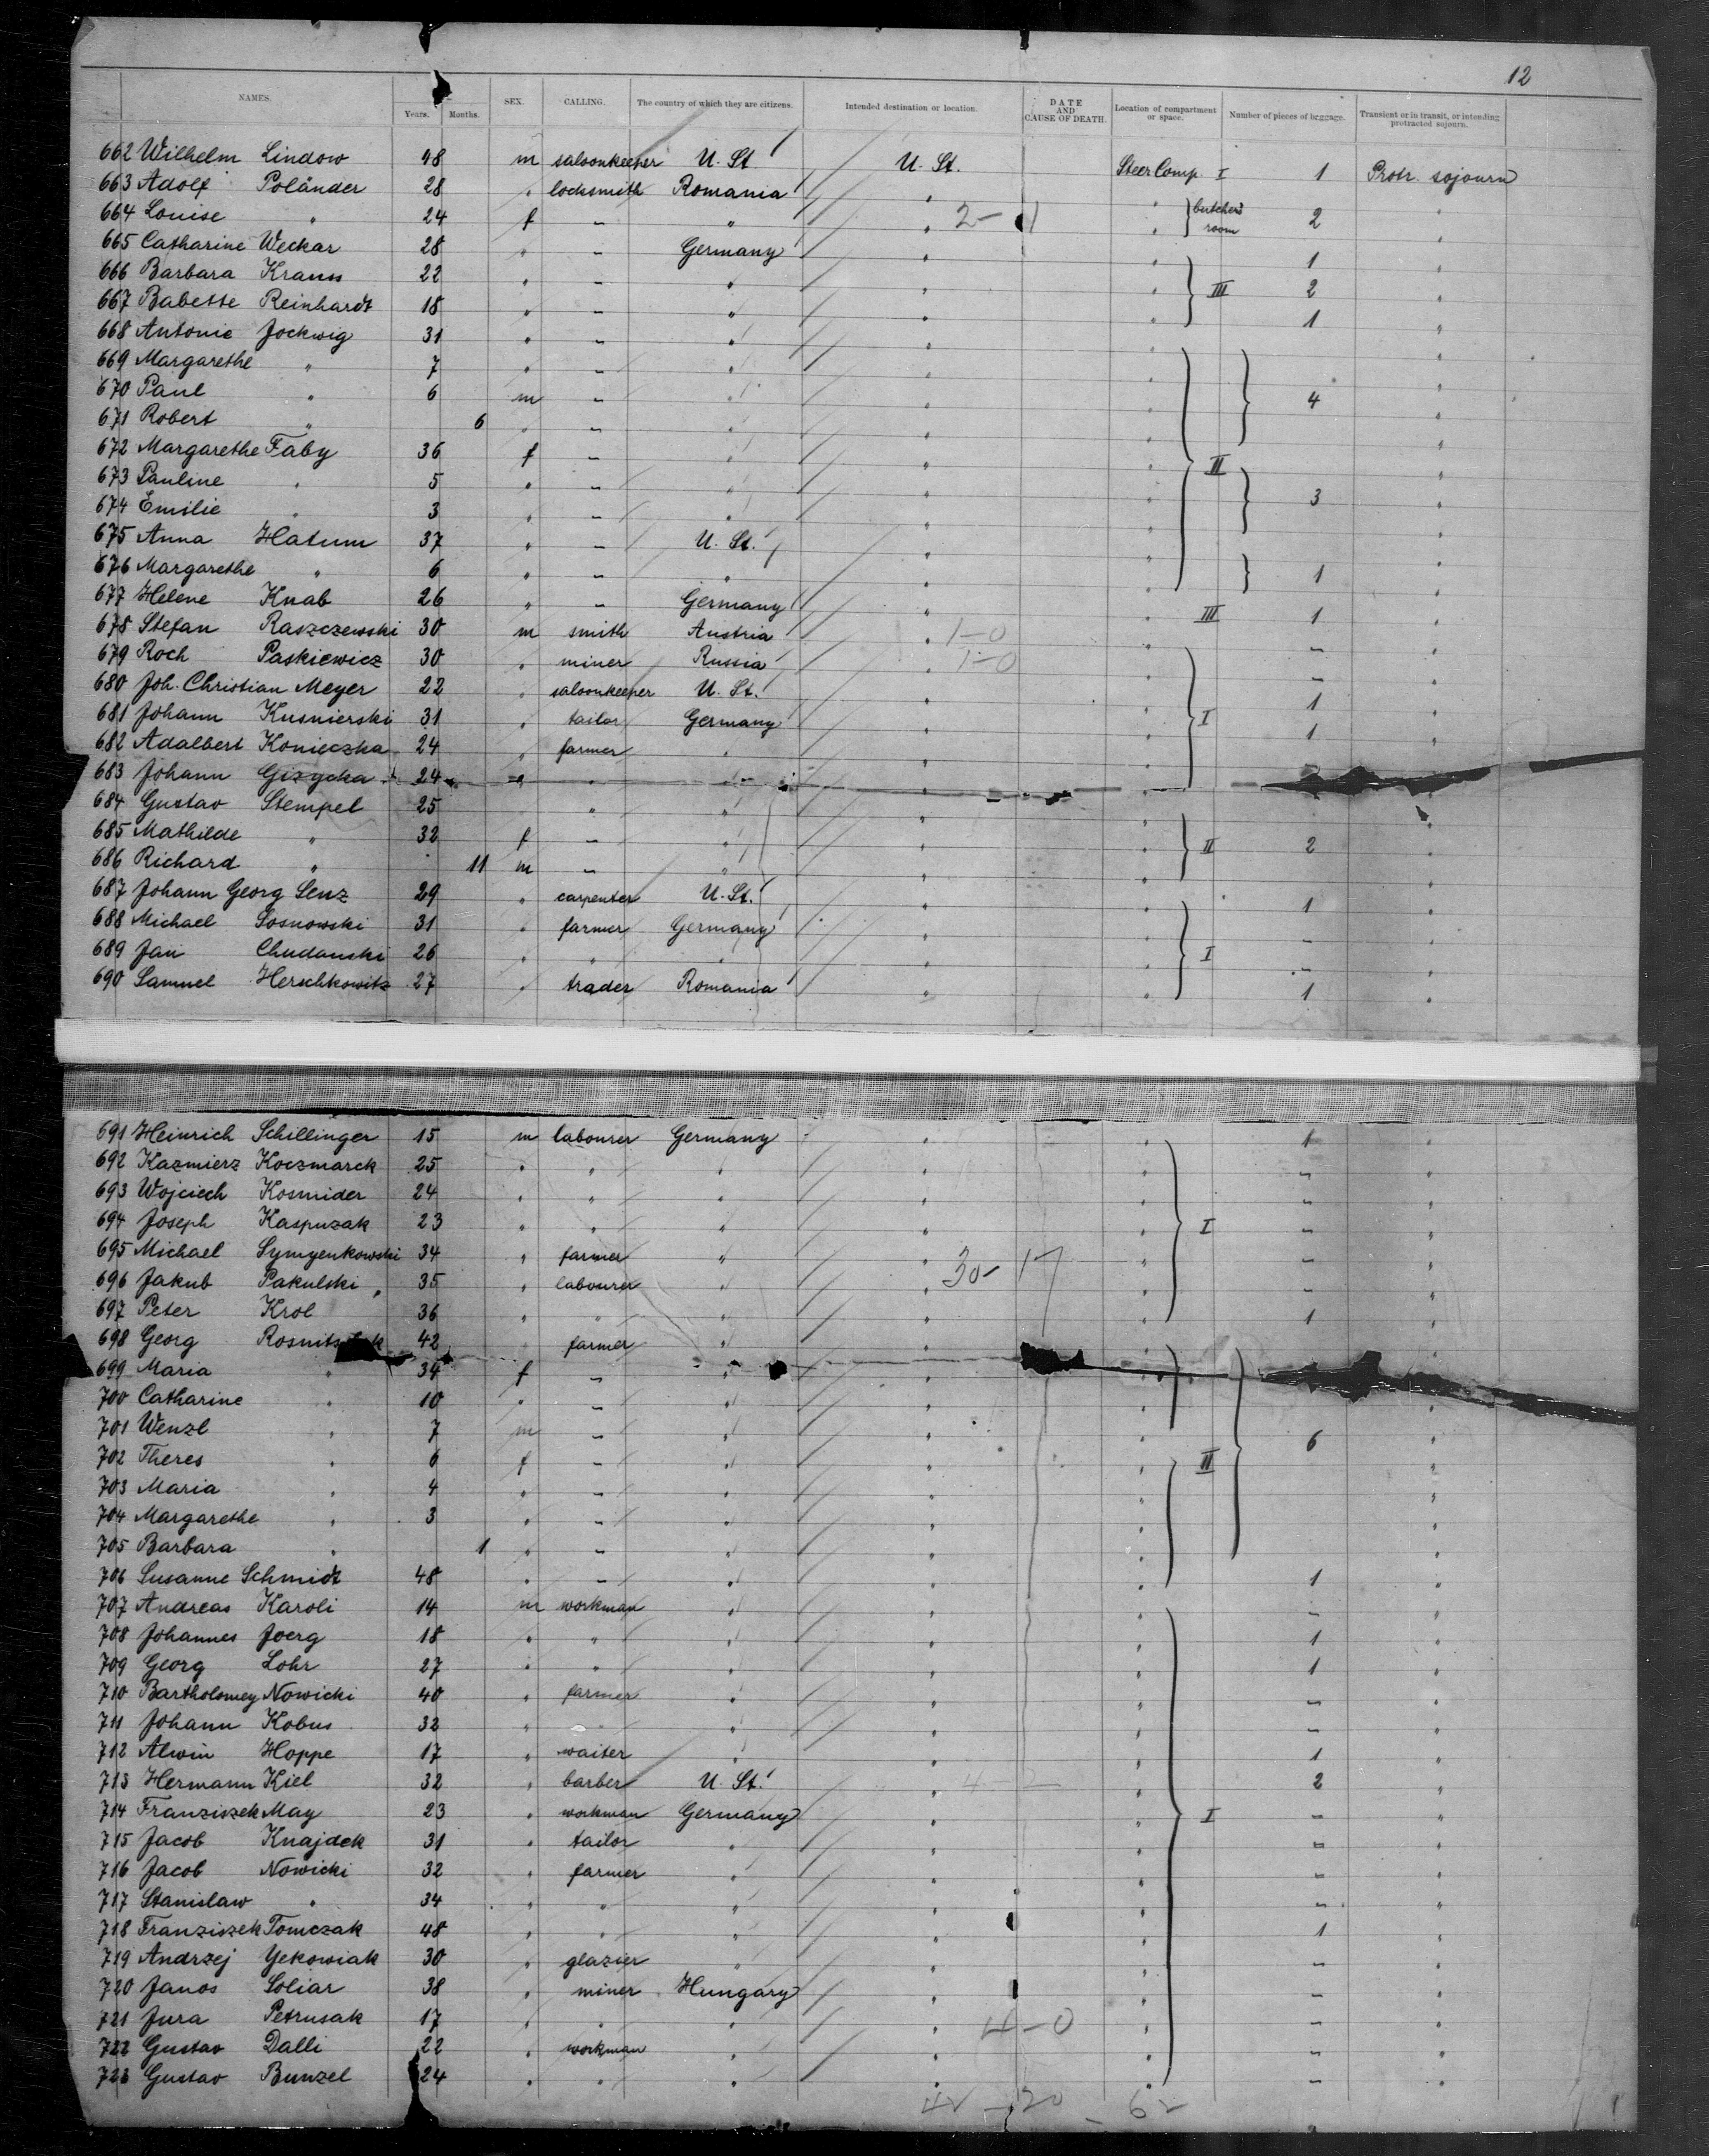 12
NAMES. Years. Months. SEX. CALLING. The country of which they are citizens. Intended destination or location. DATE AND CAUSE OF DEATH. Location of compartment or space. Number of pieces of baggage. Transient or in transit, or intending protracted sojourn.
662 Wilhelm Lindow 48 m saloonkeeper U. St. U. St. Steer Comp. I 1 Protr. sojourn
663 Adolf Poländer 28 " locksmith Romania " " butchers "
664 Louise " 24 f – " " 2- 1 " room 2 "
665 Catharine Weckar 28 " – Germany " " 1 "
666 Barbara Krauss 22 " – " " " III 2 "
667 Babette Reinhardt 18 " – " " " 1 "
668 Antonie Jockwig 31 " – " " " "
669 Margarethe " 7 " – " " " "
670 Paul " 6 m – " " " 4 "
671 Robert " 6 " – " " " "
672 Margarethe Faby 36 f – " " " II "
673 Pauline " 5 " – " " " 3 "
674 Emilie " 3 " – " " " "
675 Anna Hatum 37 " – U. St. " " "
676 Margarethe " 6 " – " " " 1 "
677 Helene Knab 26 " – Germany " " III 1 "
678 Stefan Raszczewski 30 m smith Austria " 1-0 " – "
679 Roch Paskiewicz 30 " miner Russia " 1-0 " – "
680 Joh. Christian Meyer 22 " saloonkeeper U. St. " " 1 "
681 Johann Kusnierski 31 " tailor Germany " " I 1 "
682 Adalbert Konieczka 24 " farmer " " " "
683 Johann Gizycka 24 " " " " " "
684 Gustav Stempel 25 " " " " "
685 Mathilde " 32 f – " " " II 2 "
686 Richard " 11 m – " " " "
687 Johann Georg Lenz 29 " carpenter U. St. " " 1 "
688 Michael Sosnowski 31 " farmer Germany " " – "
689 Jan Chudanski 26 " " " " " I – "
690 Samuel Herschkowitz 27 " trader Romania " " 1 "
691 Heinrich Schillinger 15 m labourer Germany " " 1 "
692 Kazmierz Koczmarek 25 " " " " " – "
693 Wojciech Kosmider 24 " " " " " – "
694 Joseph Kaspuzak 23 " " " " " I – "
695 Michael Symyenkowski 34 " farmer " " " – "
696 Jakub Pakulski 35 " labourer " " 30- 17 " – "
697 Peter Krol 36 " " " " " 1 "
698 Georg 42 farmer " " " "
699 Maria " 34 f – " " "
700 Catharine " 10 " – " " " "
701 Wenzl " 7 m – " " " 6 "
702 Theres " 6 f – " " " II "
703 Maria " 4 " – " " " "
704 Margarethe " 3 " – " " " "
705 Barbara " 1 " – " " " "
706 Susanne Schmidt 48 " – " " " 1 "
707 Andreas Karoli 14 m workman " " " – "
708 Johannes Joerg 18 " " " " " 1 "
709 Georg Lohr 27 " " " " " 1 "
710 Bartholomey Nowicki 40 " farmer " " " – "
711 Johann Kobus 32 " " " " – "
712 Alwin Hoppe 17 " waiter " " " 1 "
713 Hermann Kiel 32 " barber U. St. " " 2 "
714 Franziszek May 23 " workman Germany " " I – "
715 Jacob Knajdek 31 " tailor " " " – "
716 Jacob Nowicki 32 " farmer " " " – "
717 Stanislaw " 34 " " " " " – "
718 Franziszek Tomczak 48 " " " " " 1 "
719 Andrzej Yekowiak 30 " glazier " " " – "
720 Janos Soliar 38 " miner Hungary " " – "
721 Jura Petrusak 17 " " " " 4-0 " – "
722 Gustav Dalli 22 " workman " " " – "
723 Gustav Bunzel 24 " " " " " – "